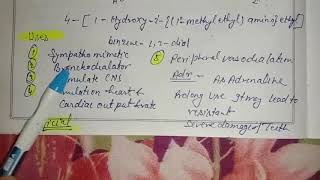 4-[1-Hydroxy-2-[(1-methylethyl)amino]ethyl]
benzene-1,2-diol
Uses
① Sympathomimetic
② Bronchodialator
mulate CNS
④ mulation heart &
Cardiac output & rate
⑤ Peripheral vasodialation
Adr - As Adrenaline
Prolong use It may lead to
resistant
Severe damage of Teeth